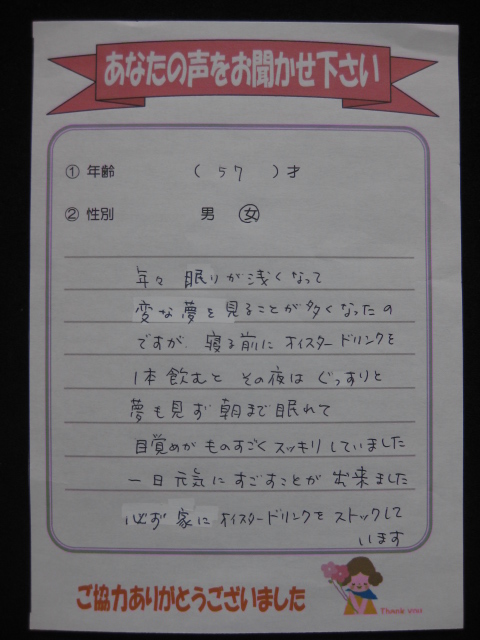 あなたの声をお聞かせ下さい
① 年齢 （ 57 ）才
② 性別 男 女
年々 眠りが浅くなって
変な夢を見ることが多くなったの
ですが 寝る前に オイスタードリンクを
1本飲むと その夜は ぐっすりと
夢も見ず 朝まで眠れて
目覚めが ものすごくスッキリしていました
一日元気にすごすことが出来ました
必ず 家に オイスタードリンクを ストックして
います
ご協力ありがとうございました
Thank you